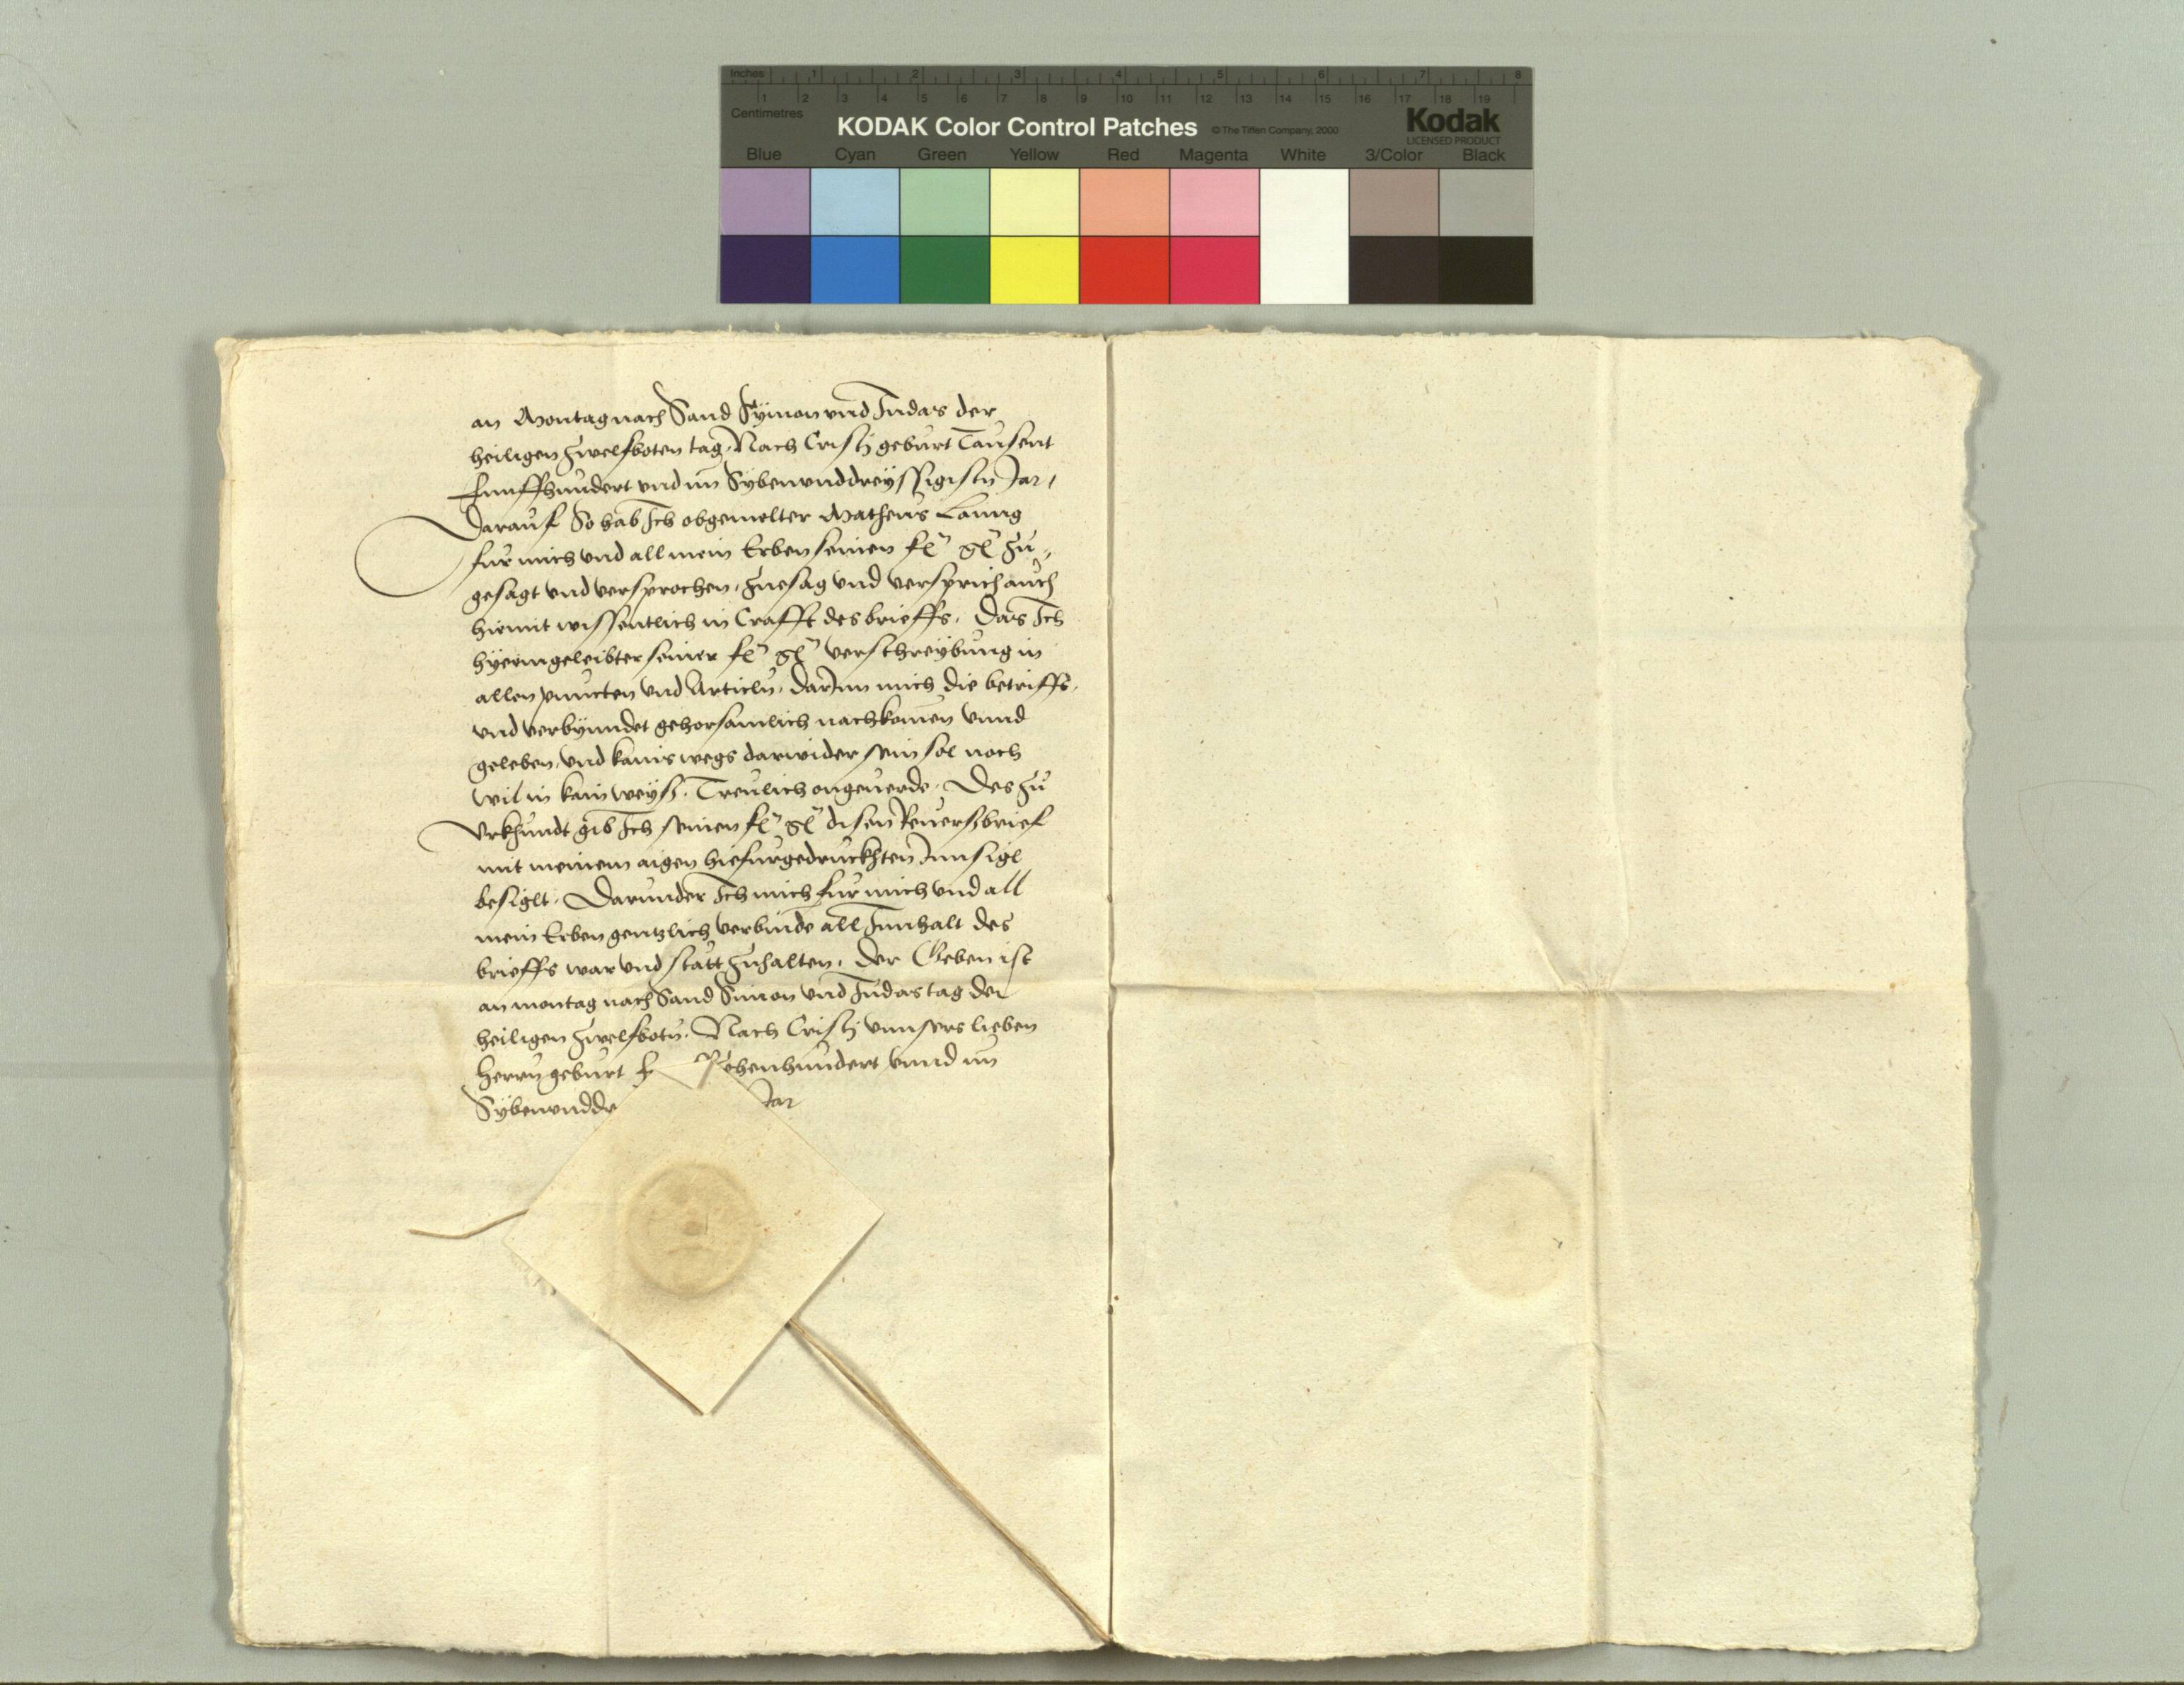 Inches 1 2 3 4 5 6 7 8
1 2 3 4 5 6 7 8 9 10 11 12 13 14 15 16 17 18 19
Centimetres
KODAK Color Control Patches © The Tiffen Company, 2000 Kodak
LICENSED PRODUCT
Blue Cyan Green Yellow Red Magenta White 3/Color Black
an Montag nach Sand Symon vnd Judas der
heiligen zwelfboten tag, Nach Cristj geburt Tausent
Funffhundert vnd im Sybenvnddreyssigistn Jar,
Darauf So hab Ich obgemelter Matheus Lanng
fur mich vnd all mein Erben seinen fl gl zu,
gesagt vnd versprochen, zuesag vnd versprich auch
hiemit wissentlich in Crafft des brieffs, Das Ich
hyeeingeleibter seiner fl gl verschreybung in
allen puncten vnd Articln, darjnn mich die betrifft,
vnd verbynndet gehorsamlich nachkomen vnnd
geleben, vnd kains wegs darwider sein sol noch
wil in kain weyß. Treulich ongeuerde. Des zu
Vrkhundt gib Ich seinen fl gl disen Reuerßbrief
mit meinem aigen hiefurgedruckhten Innsigl
besiglt. Darunder Ich mich fur mich vnd all
mein Erben gentzlich verbinde all Innhalt des
brieffs war vnd statt zuhalten. Der Geben ist
an montag nach Sand Simon vnd Judas tag der
heiligen zwelfbotn. Nach Cristj vnnsers lieben
Herrn geburt f zehenhundert vnnd im
Sybenvnddr Jar